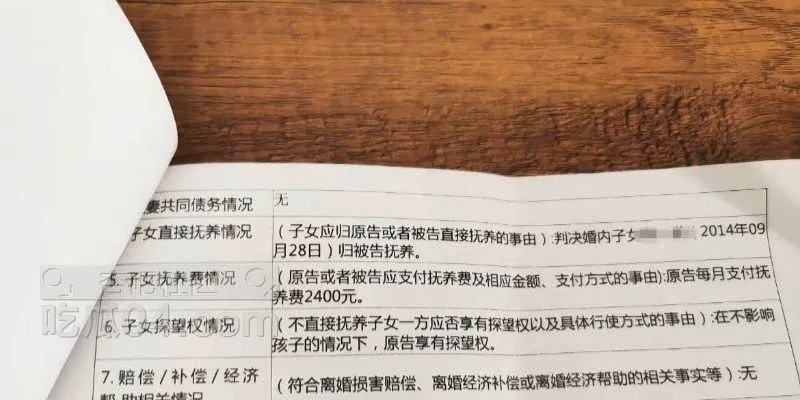 妻共同债务情况
无
子女直接抚养情况
（子女应归原告或者被告直接抚养的事由）:判决婚内子女 2014年09
月28日）归被告抚养。
5. 子女抚养费情况
（原告或者被告应支付抚养费及相应金额、支付方式的事由):原告每月支付抚
养费2400元。
6. 子女探望权情况
（不直接抚养子女一方应否享有探望权以及具体行使方式的事由）:在不影响
孩子的情况下，原告享有探望权。
7. 赔偿/补偿/经济
帮助相关情况
（符合离婚损害赔偿、离婚经济补偿或离婚经济帮助的相关事实等）:无
吃瓜04.com